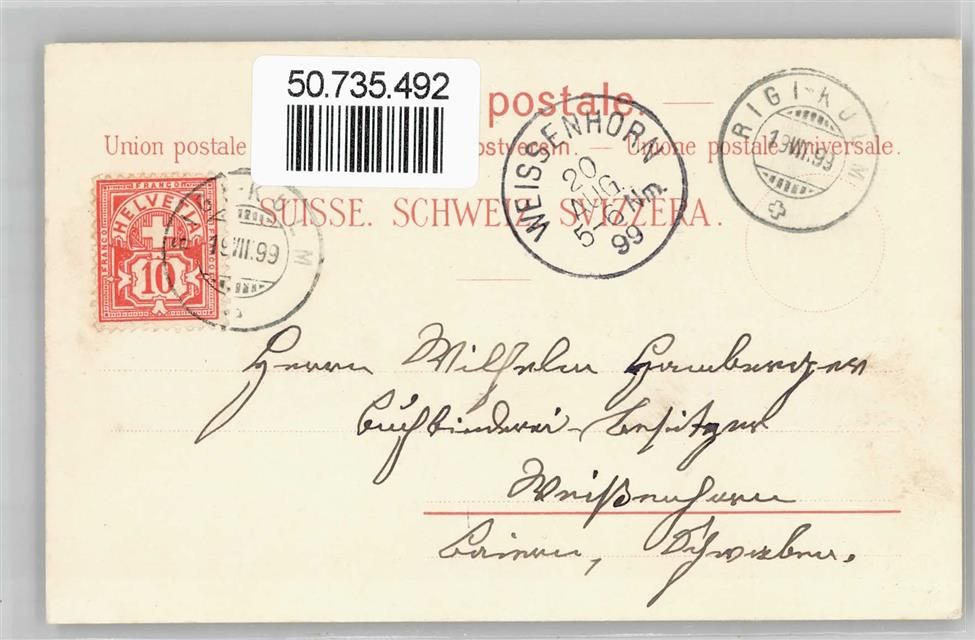 50.735.492
postale.
Union postale ostverein. — Unione postale universale.
SUISSE. SCHWEIZ. SVIZZERA.
RIGI-KULM
19.VIII.99
WEISSENHORN
20
AUG.
5-6 Nm.
99
FRANCO
HELVETIA
10
19.VIII.99
Herrn Wilhelm Hamberger
Buchbinderei-Besitzer
Weißenhorn
Baiern, Schwaben.